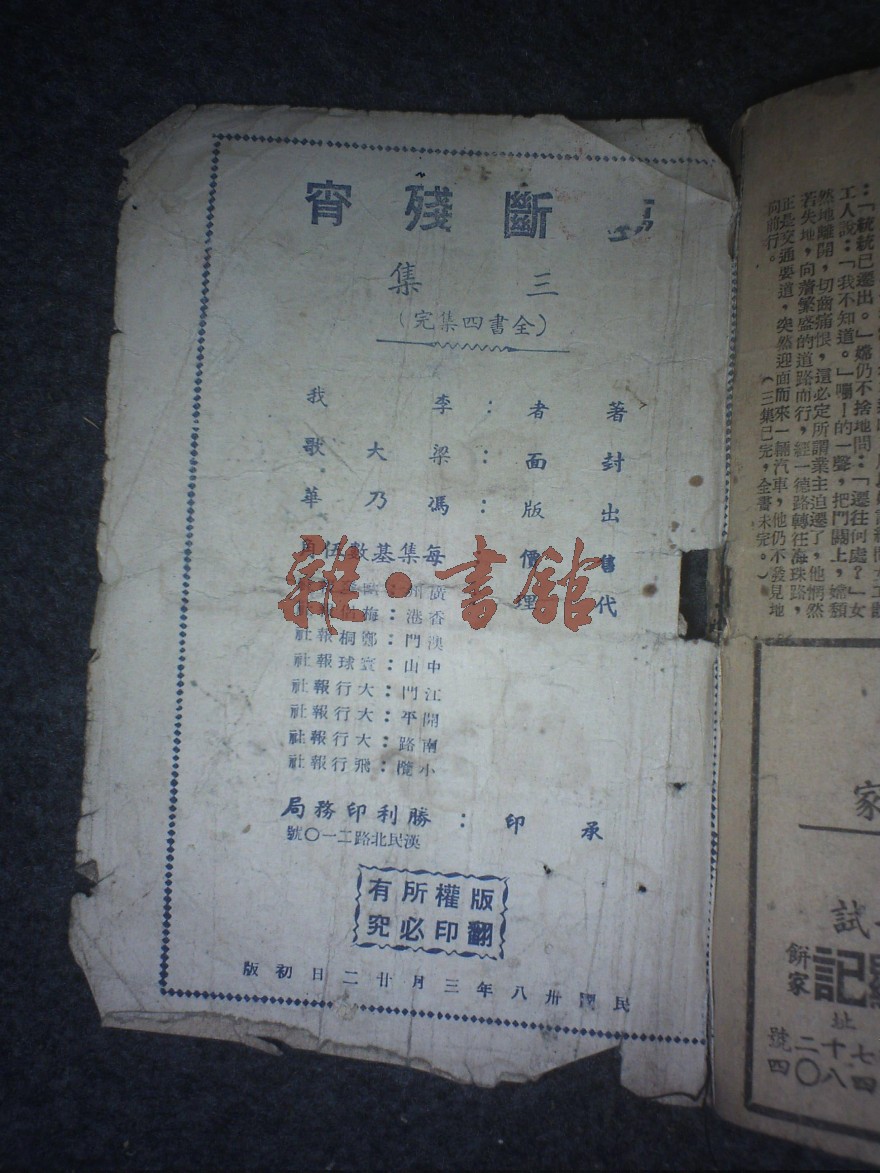 斷殘宵
三集
(全書四集完)
著者：李我
封面：梁大歌
出版：馮乃華
售價：每集基數伍角
代理
廣州：
香港：梅
澳門：鄭桐報社
中山：寰球報社
江門：大行報社
開平：大行報社
南路：大行報社
小欖：飛行報社
承印：勝利印務局
漢民北路二一〇號
版權所有
翻印必究
民國卅八年三月廿二日初版
雜·書館
：「統統已遷出。」嫦仍不捨地問：「遷往何處？」女
工人說：「我不知道。」嘣！的一聲，把門關上，嫦頹
然地離開，切齒痛恨，這必定所謂業主迫遷了，他惘然
若失地，向着繁盛的道路而行，經一德路轉往海珠路，
正是交通要道，突然迎面而來一輛汽車，他仍不發見地
向前行。（三集已完，全書未完。）
家
試
記
餅家
址
七十二號
四八〇四